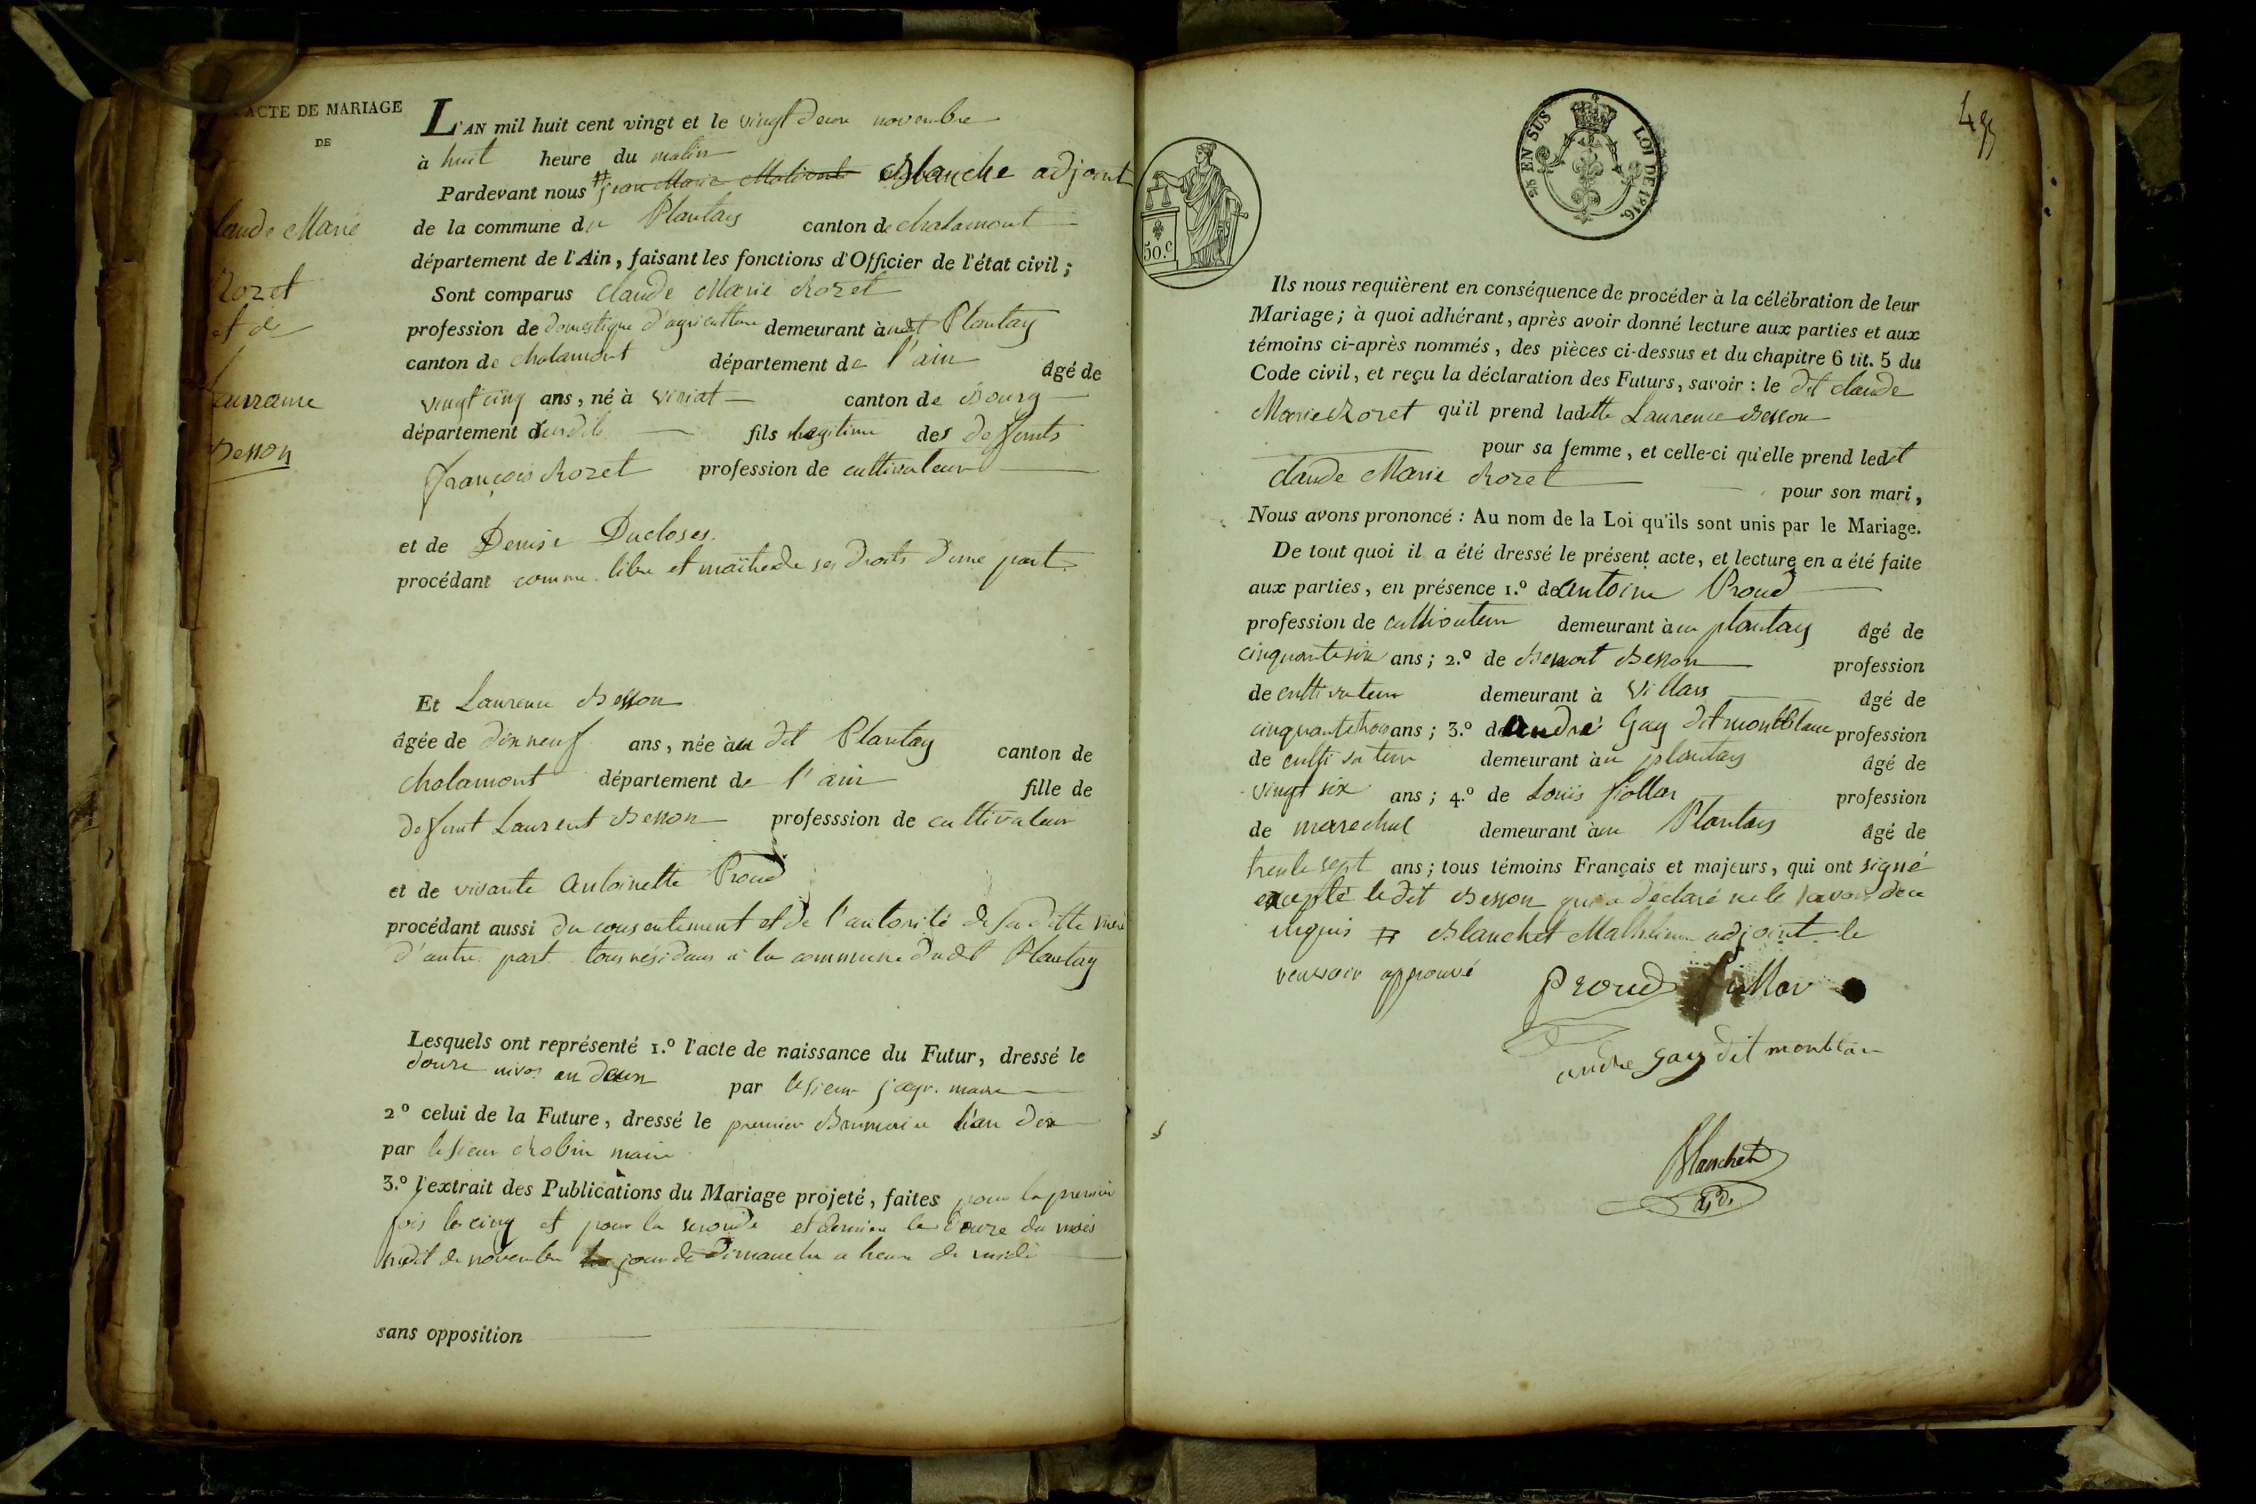 ACTE DE MARIAGE
DE
Claude Marie
Rozet
et de
Laurance
Besson
L'AN mil huit cent vingt et le vingt deux novembre
à huit heure du malin
Pardevant nous # Blanche adjoint
de la commune du Plantay canton de chalamont
département de l'Ain, faisant les fonctions d'Officier de l'état civil;
Sont comparus Claude Marie Rozet
profession de domestique d'agriculture demeurant audt Plantay
canton de chalamont département de l'ain âgé de
vingt cinq ans, né à viriat canton de Bourg
département fils legitime des deffunts
françois Rozet profession de cultivateur
et de Denise Ducloses.
procédant comme libre et maitre de ses droits d'une part.
Et Laurence Besson
âgée de dix neuf ans, née au dit Plantay canton de
chalamont département de l'ain fille de
deffunt Laurent Besson professsion de cultivateur
et de vivante Antoinette Proud
procédant aussi du consentement et de l'autorité de sa ditte mère
d'autre part tous résidans à la commune dudt Plantay
Lesquels ont représenté 1.º l'acte de naissance du Futur, dressé le
douze nivos an deux par le sieur maire
2º celui de la Future, dressé le premier Brumaire l'an dix
par le sieur Robin maire
3.º l'extrait des Publications du Mariage projeté, faites pour la premier
fois le cinq et pour la seconde et derniere le douze du mois
sudit de novembre jour de dimanche a heure de midi
sans opposition
50.c
EN SUS LOI DE 1816.
495
Ils nous requièrent en conséquence de procéder à la célébration de leur
Mariage; à quoi adhérant, après avoir donné lecture aux parties et aux
témoins ci-après nommés, des pièces ci-dessus et du chapitre 6 tit. 5 du
Code civil, et reçu la déclaration des Futurs, savoir : le dit claude
Marie Rozet qu'il prend ladtte Laurence Besson
pour sa femme, et celle-ci qu'elle prend ledt
Claude Marie Rozet pour son mari,
Nous avons prononcé : Au nom de la Loi qu'ils sont unis par le Mariage.
De tout quoi il a été dressé le présent acte, et lecture en a été faite
aux parties, en présence 1.º de antoine Proud
profession de cultivateur demeurant au plantay âgé de
cinquante six ans; 2.º de Benoit Besson profession
de cultivateur demeurant à Villars âgé de
cinquante trois ans; 3.º de André Gay dit montblanc profession
de cultivateur demeurant au plantay âgé de
vingt six ans; 4.º de Louis fiollar profession
de marechal demeurant au Plantay âgé de
trente sept ans; tous témoins Français et majeurs, qui ont signé
excepté le dit Besson qui a déclaré ne le savoir de ce
requis # Blanchet Mathieu adjoint le
renvoie approuvé
Proud fiollar
andre gay dit montblan
Blanchet
adj.